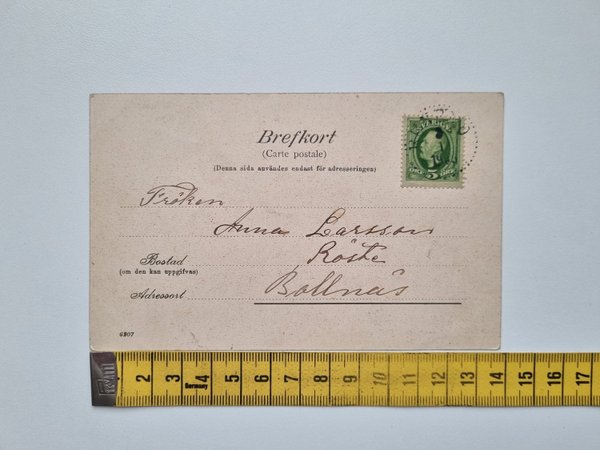 Brefkort
(Carte postale)
(Denna sida användes endast för adresseringen)
SVERIGE
5
Fröken
Anna Larsson
Röste
Bostad
(om den kan uppgifvas)
Bollnäs
Adressort
6207
2 3 4 5 6 7 8 9 10 11 12 13 14 15 16 17
Germany